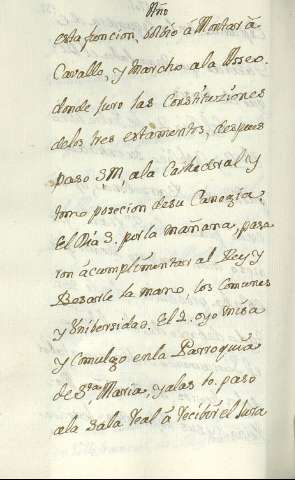 Año
esta foncion, bolbio á Montar á
Cavallo, y marcho a la Asseo.
donde juro las Constituziones
de los tres estamentos, despues
paso S.M. a la Cathedral y
tomo posecion de su Canogia.
El Dia 3. por la mañana, pasa
ron á cumplimentar al Rey y
Besarle la mano, los Comunes
y Unibersidad. El 2. oyo misa
y comulgo en la Parroquia
de Sta. Maria, y a las 10. paso
a la Sala Real á recibir el Jura